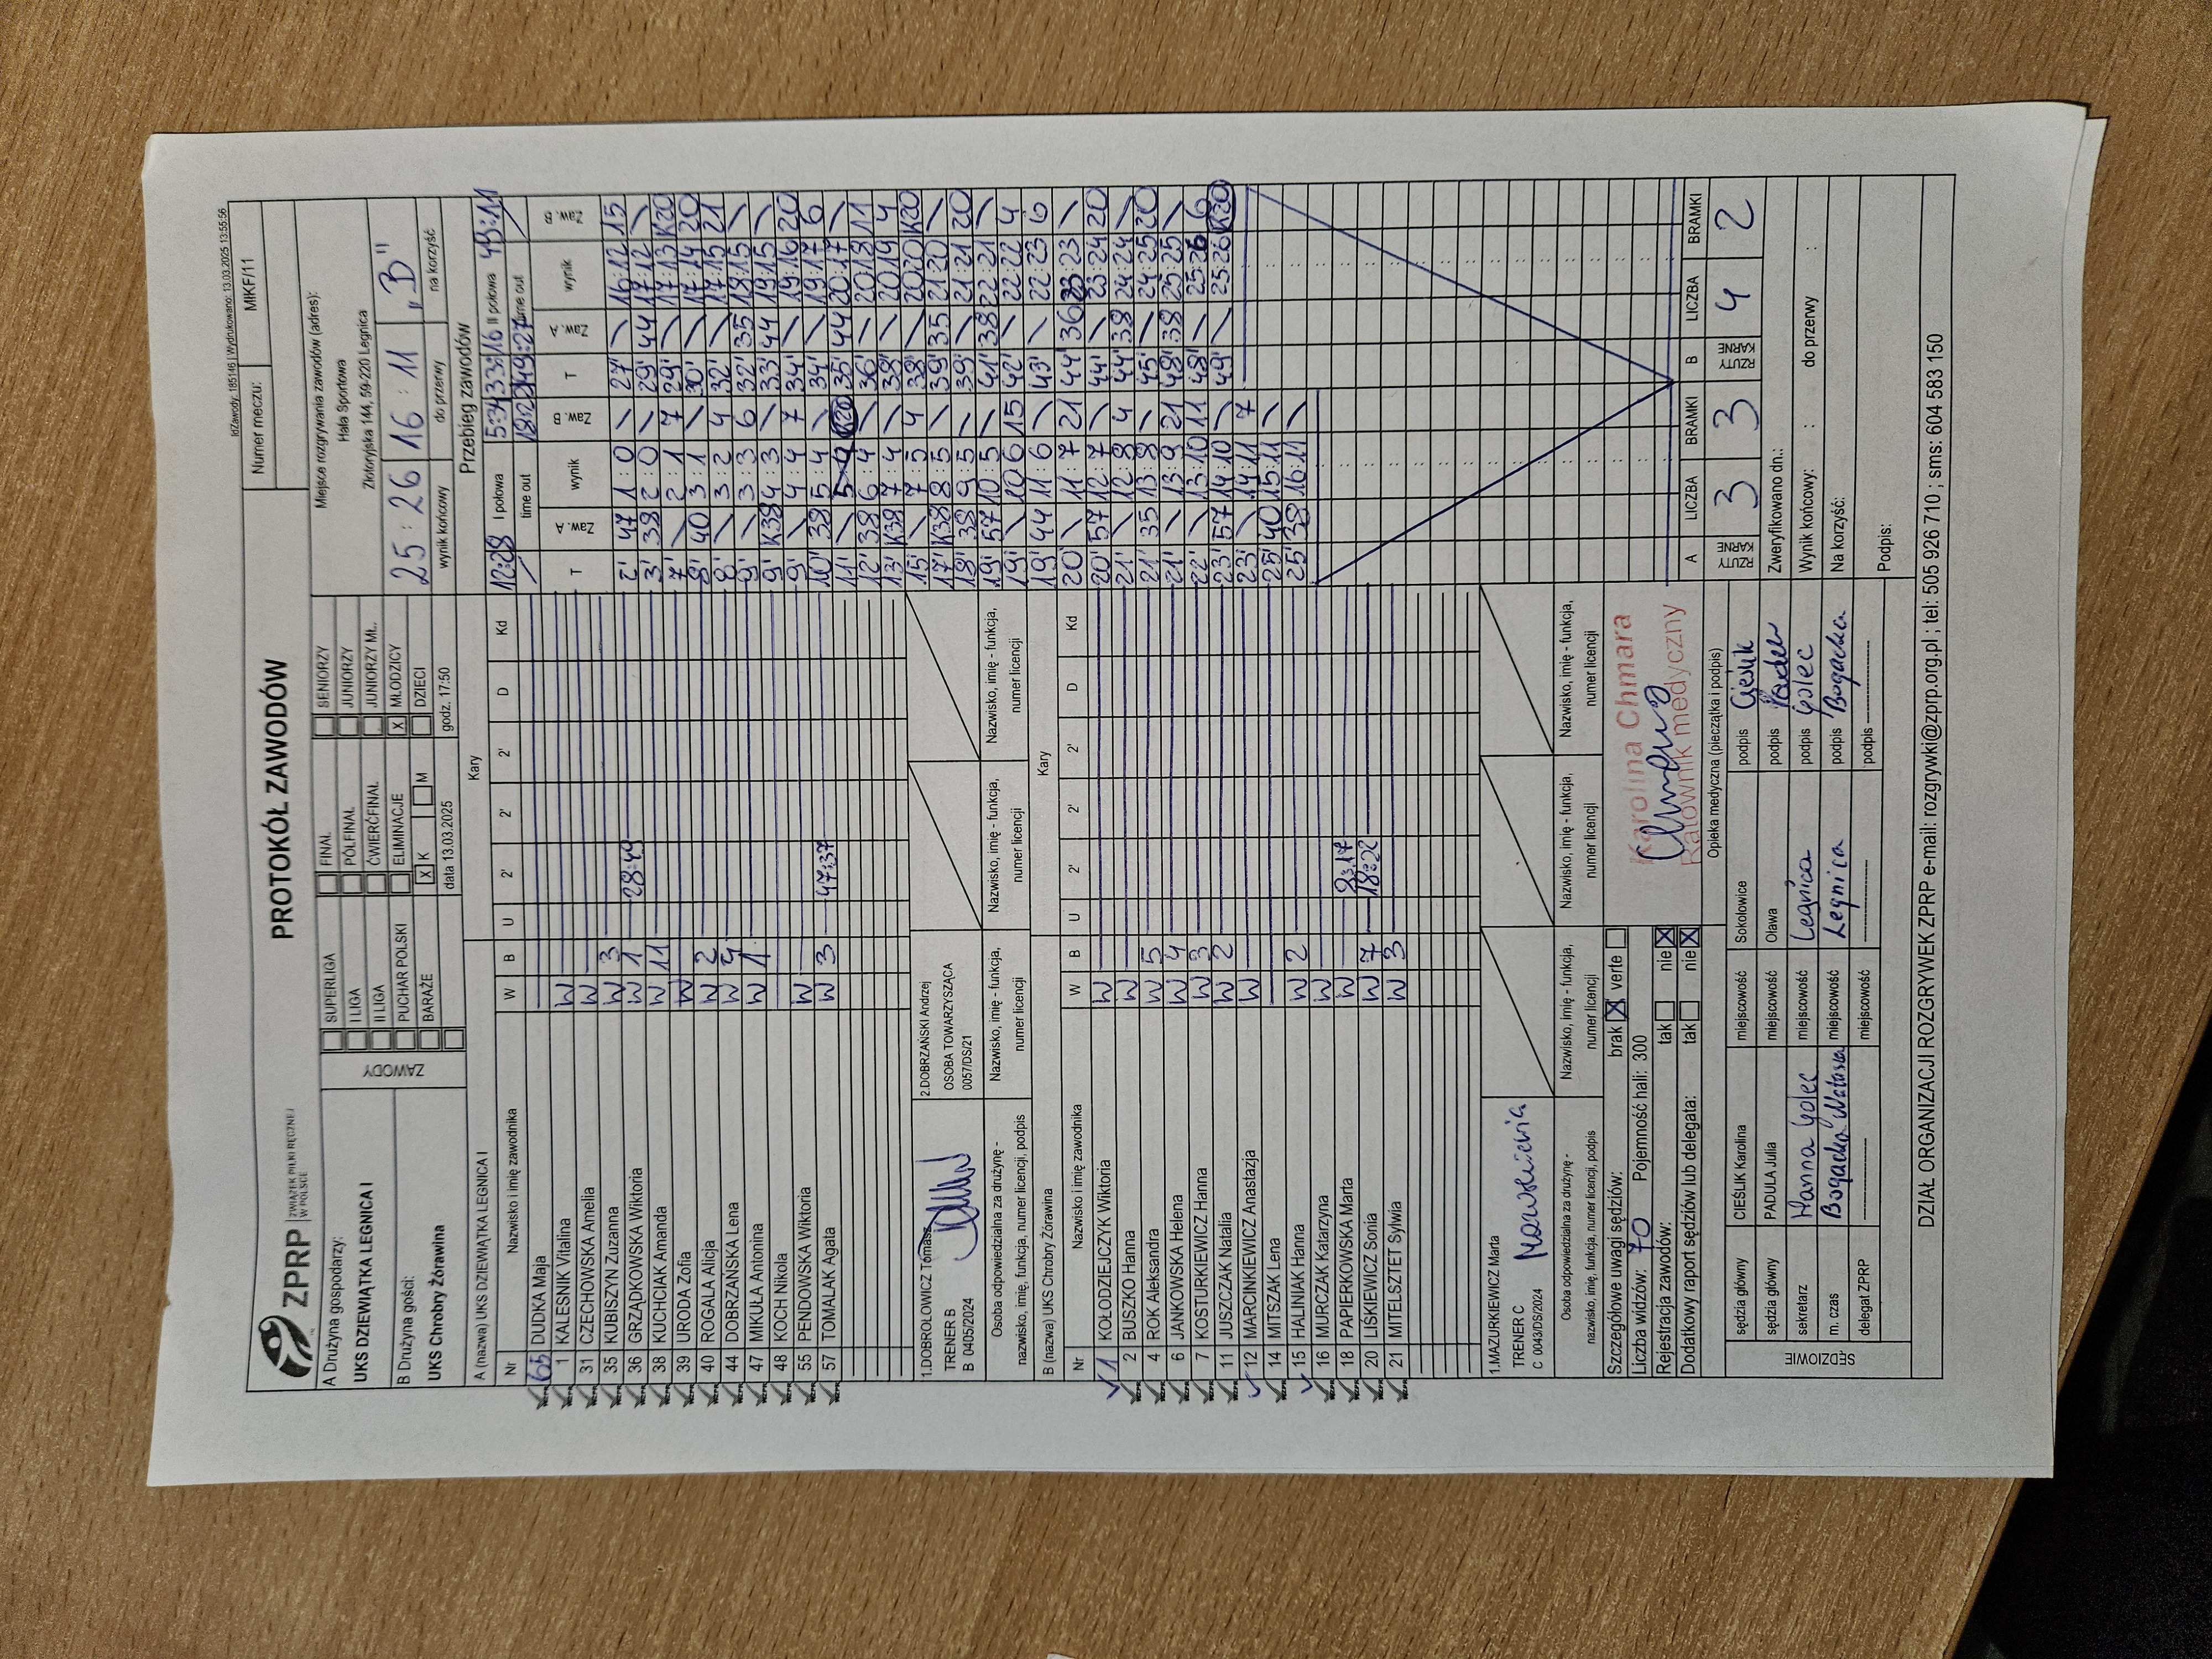 IdZawody: 185146 | Wydrukowano: 13.03.2025 13:55:56
ZPRP ZWIĄZEK PIŁKI RĘCZNEJ W POLSCE
PROTOKÓŁ ZAWODÓW
Numer meczu: MłKF/11
A Drużyna gospodarzy:
UKS DZIEWIĄTKA LEGNICA I
B Drużyna gości:
UKS Chrobry Żórawina
ZAWODY
SUPERLIGA FINAŁ SENIORZY
I LIGA PÓŁFINAŁ JUNIORZY
II LIGA ĆWIERĆFINAŁ JUNIORZY MŁ.
PUCHAR POLSKI ELIMINACJE X MŁODZICY
BARAŻE X K M DZIECI
data 13.03.2025 godz. 17:50
Miejsce rozgrywania zawodów (adres):
Hala Sportowa
Złotoryjska 144, 59-220 Legnica
25 : 26 16 : 11 „B"
wynik końcowy do przerwy na korzyść
A (nazwa) UKS DZIEWIĄTKA LEGNICA I Kary
Nr Nazwisko i imię zawodnika W B U 2' 2' 2' D Kd
65 DUDKA Maja
1 KALESNIK Vitalina W
31 CZECHOWSKA Amelia W
35 KUBISZYN Zuzanna W 3
36 GRZĄDKOWSKA Wiktoria W 1 28:49
38 KUCHCIAK Amanda W 11
39 URODA Zofia W
40 ROGALA Alicja W 2
44 DOBRZAŃSKA Lena W 4
47 MIKUŁA Antonina W 1
48 KOCH Nikola
55 PENDOWSKA Wiktoria W
57 TOMALAK Agata W 3 47:37
1.DOBROLOWICZ Tomasz
TRENER B
B 0405/2024
2.DOBRZAŃSKI Andrzej
OSOBA TOWARZYSZĄCA
0057/DS/21
Osoba odpowiedzialna za drużynę - nazwisko, imię, funkcja, numer licencji, podpis
Nazwisko, imię - funkcja, numer licencji
Nazwisko, imię - funkcja, numer licencji
Nazwisko, imię - funkcja, numer licencji
B (nazwa) UKS Chrobry Żórawina Kary
Nr Nazwisko i imię zawodnika W B U 2' 2' 2' D Kd
1 KOŁODZIEJCZYK Wiktoria W
2 BUSZKO Hanna W
4 ROK Aleksandra W 5
6 JANKOWSKA Helena W 4
7 KOSTURKIEWICZ Hanna W 3
11 JUSZCZAK Natalia W 2
12 MARCINKIEWICZ Anastazja W
14 MITSZAK Lena
15 HALINIAK Hanna W 2
16 MURCZAK Katarzyna W
18 PAPIERKOWSKA Marta W 9:17
20 LIŚKIEWICZ Sonia W 7 18:22
21 MITELSZTET Sylwia W 3
1.MAZURKIEWICZ Marta
TRENER C
C 0043/DS/2024
Osoba odpowiedzialna za drużynę - nazwisko, imię, funkcja, numer licencji, podpis
Nazwisko, imię - funkcja, numer licencji
Nazwisko, imię - funkcja, numer licencji
Nazwisko, imię - funkcja, numer licencji
Szczegółowe uwagi sędziów: brak X verte
Liczba widzów: 70 Pojemność hali: 300
Rejestracja zawodów: tak nie X
Dodatkowy raport sędziów lub delegata: tak nie X
Karolina Chmara
Ratownik medyczny
Opieka medyczna (pieczątka i podpis)
SĘDZIOWIE
sędzia główny CIEŚLIK Karolina miejscowość Sokołowice podpis Cieślik
sędzia główny PADULA Julia miejscowość Oława podpis
sekretarz Hanna Golec miejscowość Legnica podpis Golec
m. czas Bogacka Natasza miejscowość Legnica podpis Bogacka
delegat ZPRP miejscowość podpis
Przebieg zawodów
12:28 I połowa 5:34 33:16 II połowa 49:11
time out 18:22 49:27 time out
T Zaw. A wynik Zaw. B
2' 47 1:0 \
3' 38 2:0 \
7' \ 2:1 7
8' 40 3:1 \
8' \ 3:2 4
9' \ 3:3 6
9' K38 4:3 \
9' \ 4:4 7
10' 38 5:4 \
11' \ 5:4 K20
12' 38 6:4 \
13' K38 7:4 \
15' \ 7:5 4
17' K38 8:5 \
18' 38 9:5 \
19' 57 10:5 \
19' \ 10:6 15
19' 44 11:6 \
20' \ 11:7 21
20' 57 12:7 \
21' \ 12:8 4
21' 35 13:8 \
21' \ 13:9 21
22' \ 13:10 11
23' 57 14:10 \
23' \ 14:11 7
25' 40 15:11 \
25' 38 16:11 \
T Zaw. A wynik Zaw. B
27' \ 16:12 15
29' 44 17:12 \
29' \ 17:13 K20
30' \ 17:14 20
32' \ 17:15 21
32' 35 18:15 \
33' 44 19:15 \
34' \ 19:16 20
34' \ 19:17 6
35' 44 20:17 \
36' \ 20:18 11
38' \ 20:19 4
38' \ 20:20 K20
39' 35 21:20 \
39' \ 21:21 20
41' 38 22:21 \
42' \ 22:22 4
43' \ 22:23 6
44' 36 23:23 \
44' \ 23:24 20
44' 38 24:24 \
45' \ 24:25 20
48' 38 25:25 \
48' \ 25:26 6
49' \ 25:26 K20
A LICZBA BRAMKI B LICZBA BRAMKI
RZUTY KARNE 3 3 RZUTY KARNE 4 2
Zweryfikowano dn.:
Wynik końcowy: : do przerwy :
Na korzyść:
Podpis:
DZIAŁ ORGANIZACJI ROZGRYWEK ZPRP e-mail: rozgrywki@zprp.org.pl ; tel: 505 926 710 ; sms: 604 583 150